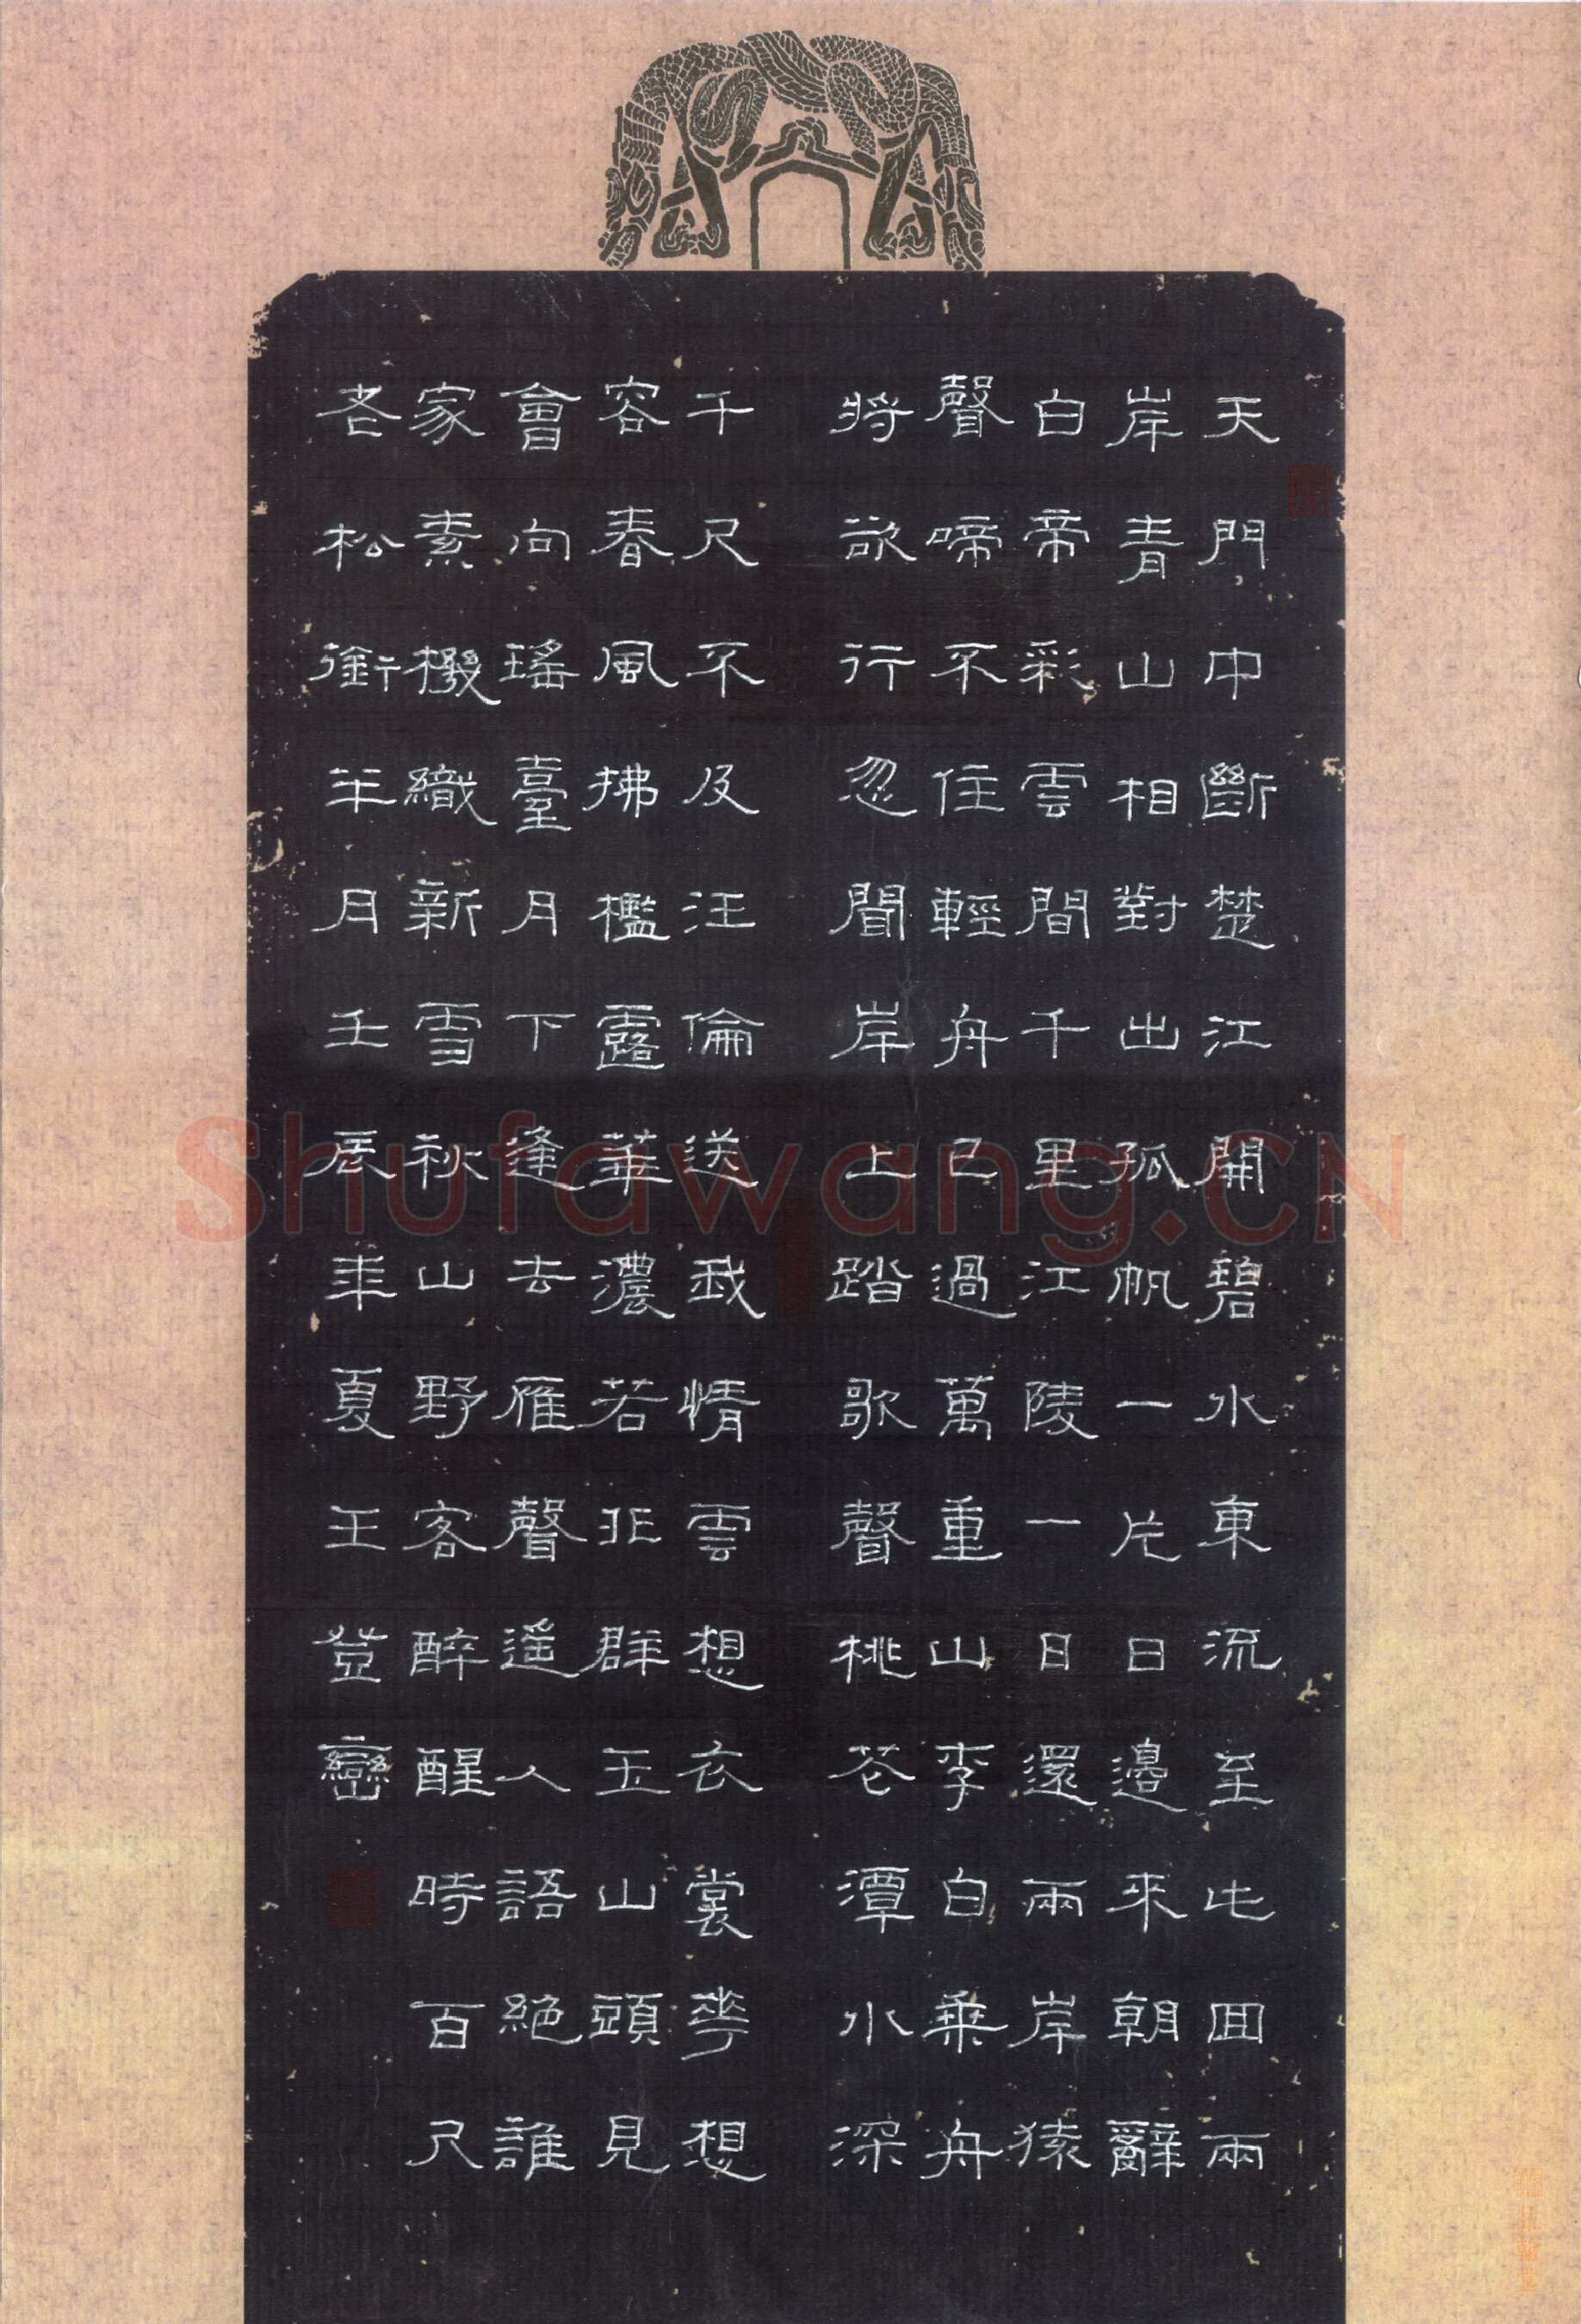 天門中斷楚江開碧水東流至此回兩
岸青山相對出孤帆一片日邊來朝辭
白帝彩雲間千里江陵一日還兩岸猿
聲啼不住輕舟已過萬重山李白乘舟
將欲行忽聞岸上踏歌聲桃花潭水深
千尺不及汪倫送我情雲想衣裳花想
容春風拂檻露華濃若非群玉山頭見
會向瑤臺月下逢去雁聲遙人語絕誰
家素機織新雪秋山野客醉醒時百尺
老松銜半月壬辰年夏王登巒
Shufawang.CN